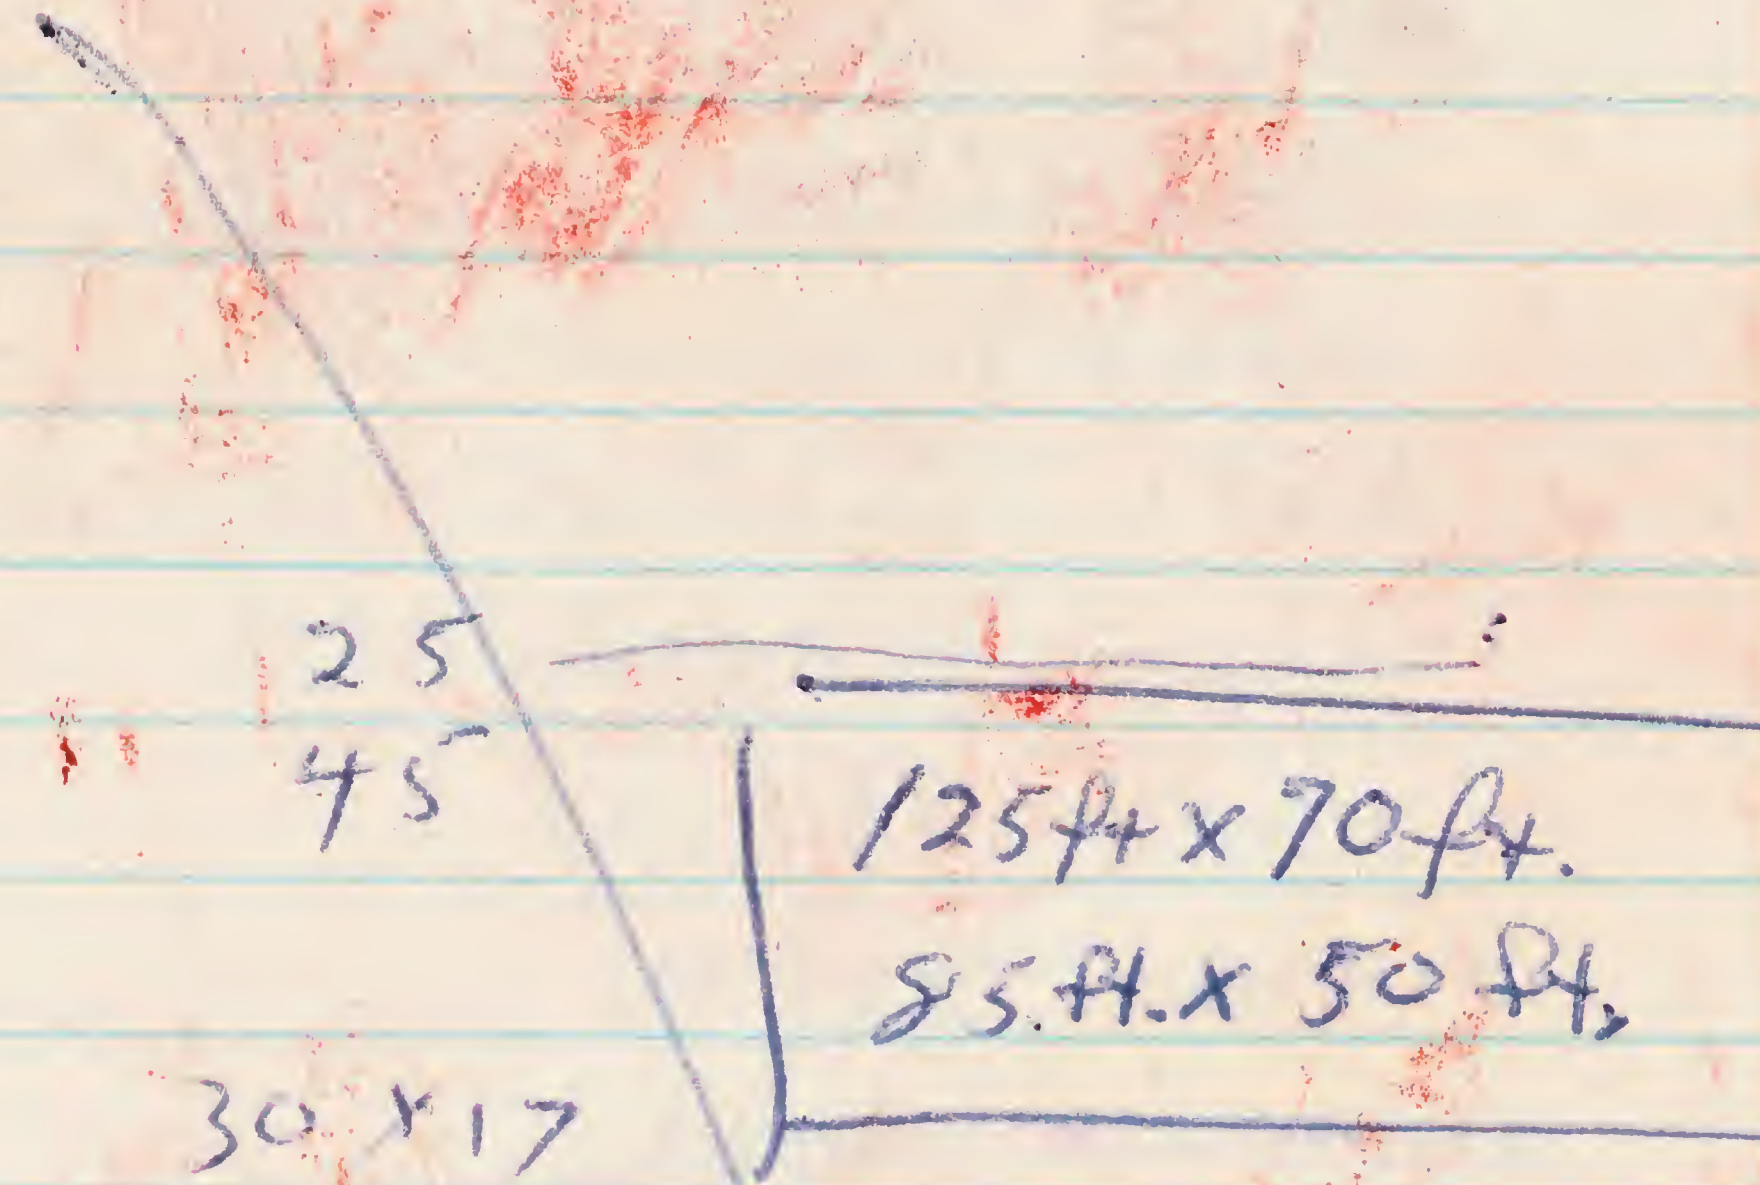 25
45
125ft x 70 ft.
85.ft. x 50 ft.
30 x 17